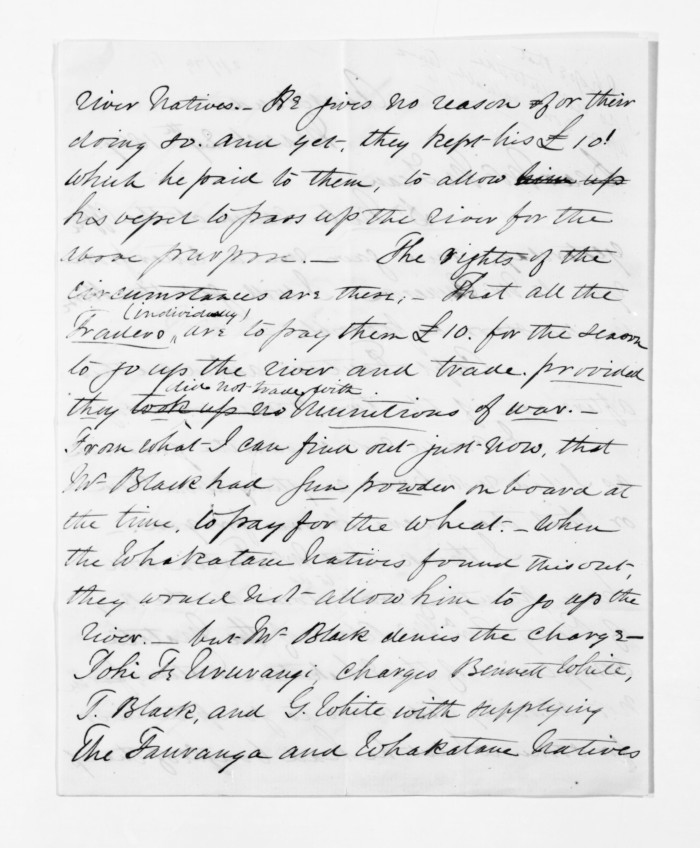 river Natives. — He gives no reason for their
doing so. and yet, they kept his £10!
which he paid to them, to allow him up
his vessel to pass up the river for the
above purpose. — The rights of the
circumstances are these, — That all the
(individually)
Traders, are to pay them £10. for the season
to go up the river and trade. provided
did not trade with
they took up no Munitions of war. —
From what I can find out just now, that
Mr Black had Gun powder on board at
the time, to pay for the wheat. — When
the Whakatane Natives found this out,
they would not allow him to go up the
river. — but Mr Black denies the charge —
Tohi Te Ururangi, charges Bennett White,
T. Black, and G. White with supplying
The Tauranga and Whakatane Natives